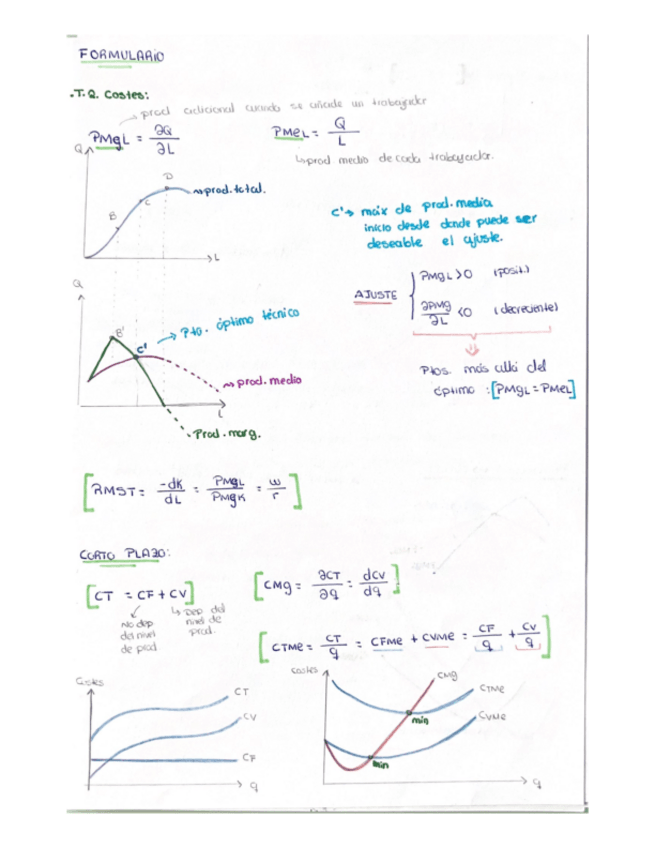 FORMULARIO
.T.Q. Costes:
→ prod adicional cuando se añade un trabajador
PMgL = ∂Q/∂L
PMeL = Q/L
↳ prod medio de cada trabajador.
Q
D
C
B
→ prod. total.
L
C' → máx de prod. media
inicio desde donde puede ser
deseable el ajuste.
AJUSTE
PMgL > 0 (posit.)
∂PMg/∂L < 0 (decreciente)
Ptos. más allá del
óptimo : [PMgL = PMeL]
Q
B'
C'
→ Pto. óptimo técnico
→ prod. medio
L
Prod. marg.
[RMST = -dK/dL = PMgL/PMgK = w/r]
CORTO PLAZO:
[CT = CF + CV]
No dep
del nivel
de prod
↳ Dep del
nivel de
prod.
[CMg = ∂CT/∂q = dCV/dq]
[CTMe = CT/q = CFMe + CVMe = CF/q + CV/q]
Costes
CT
CV
CF
q
Costes
CMg
CTMe
CVMe
min
min
q